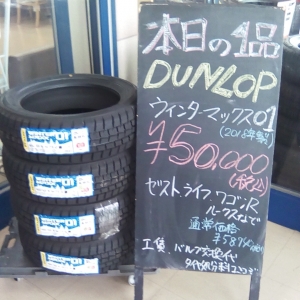 本日の1品
DUNLOP
ウィンターマックス01
(2018年製)
¥50,000
(税込)
ゼスト、ライフ、ワゴンR、
ルークスなどで
通常価格
工賃、バルブ交換代、
タイヤ処分料コミコミ